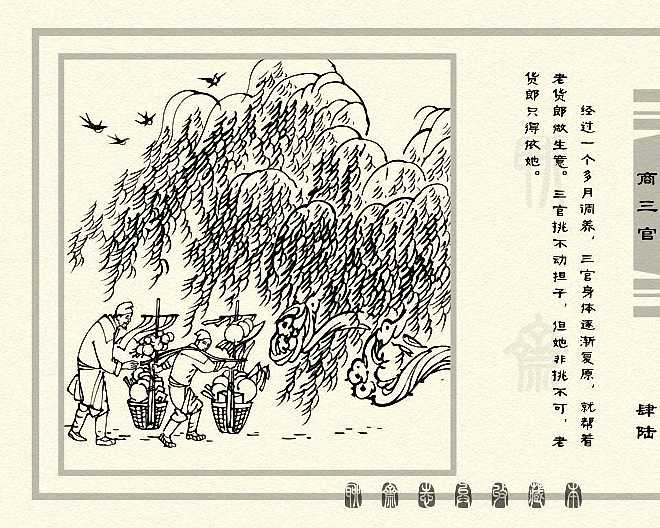 经过一个多月调养，三官身体逐渐复原，就帮着
老货郎做生意。三官挑不动担子，但她非挑不可，老
货郎只得依她。
商三官
肆陆